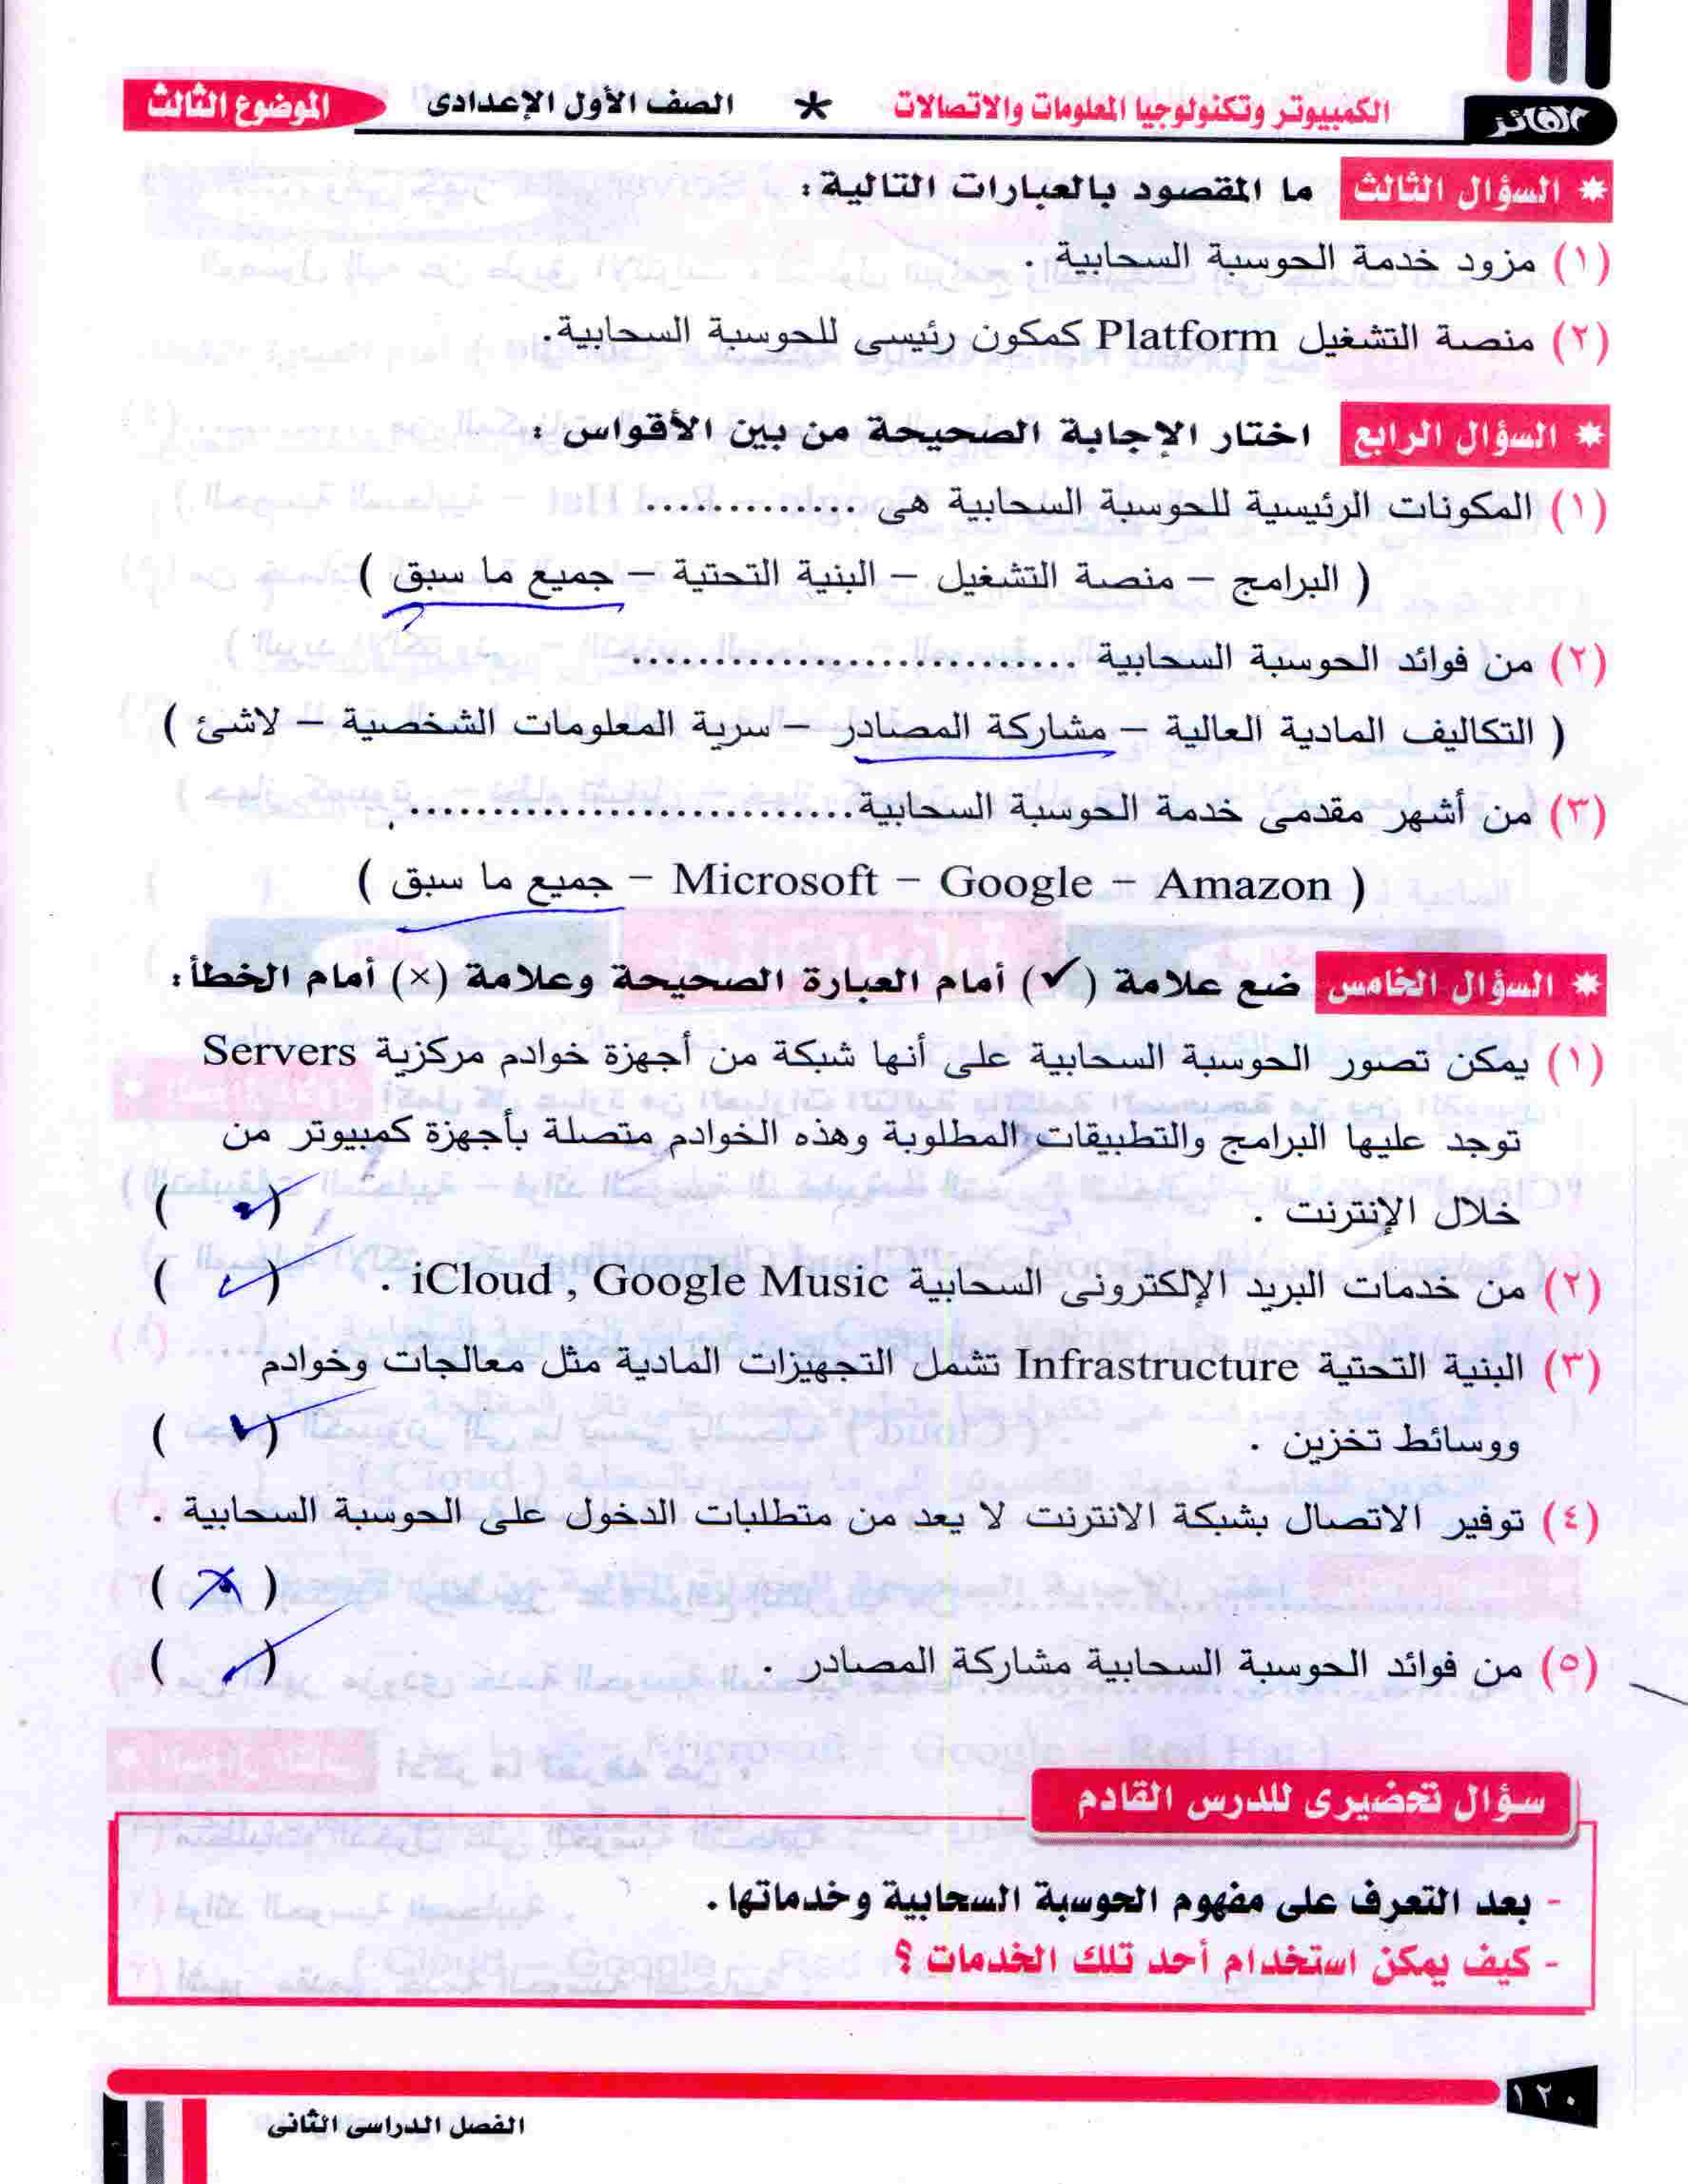 الفائز
الكمبيوتر وتكنولوجيا المعلومات والاتصالات * الصف الأول الإعدادى الموضوع الثالث
* السؤال الثالث ما المقصود بالعبارات التالية :
(١) مزود خدمة الحوسبة السحابية .
(٢) منصة التشغيل Platform كمكون رئيسى للحوسبة السحابية.
* السؤال الرابع اختار الإجابة الصحيحة من بين الأقواس :
(١) المكونات الرئيسية للحوسبة السحابية هى ..............
( البرامج – منصة التشغيل – البنية التحتية – جميع ما سبق )
(٢) من فوائد الحوسبة السحابية ............................
( التكاليف المادية العالية – مشاركة المصادر – سرية المعلومات الشخصية – لاشئ )
(٣) من أشهر مقدمى خدمة الحوسبة السحابية............................
( Microsoft – Google – Amazon – جميع ما سبق )
* السؤال الخامس ضع علامة (✓) أمام العبارة الصحيحة وعلامة (×) أمام الخطأ:
(١) يمكن تصور الحوسبة السحابية على أنها شبكة من أجهزة خوادم مركزية Servers
توجد عليها البرامج والتطبيقات المطلوبة وهذه الخوادم متصلة بأجهزة كمبيوتر من
خلال الإنترنت . (✓)
(٢) من خدمات البريد الإلكترونى السحابية iCloud , Google Music . (✓)
(٣) البنية التحتية Infrastructure تشمل التجهيزات المادية مثل معالجات وخوادم
ووسائط تخزين . (✓)
(٤) توفير الاتصال بشبكة الانترنت لا يعد من متطلبات الدخول على الحوسبة السحابية .
(×)
(٥) من فوائد الحوسبة السحابية مشاركة المصادر . (✓)
سؤال تحضيرى للدرس القادم
- بعد التعرف على مفهوم الحوسبة السحابية وخدماتها.
- كيف يمكن استخدام أحد تلك الخدمات ؟
١٢٠
الفصل الدراسى الثانى